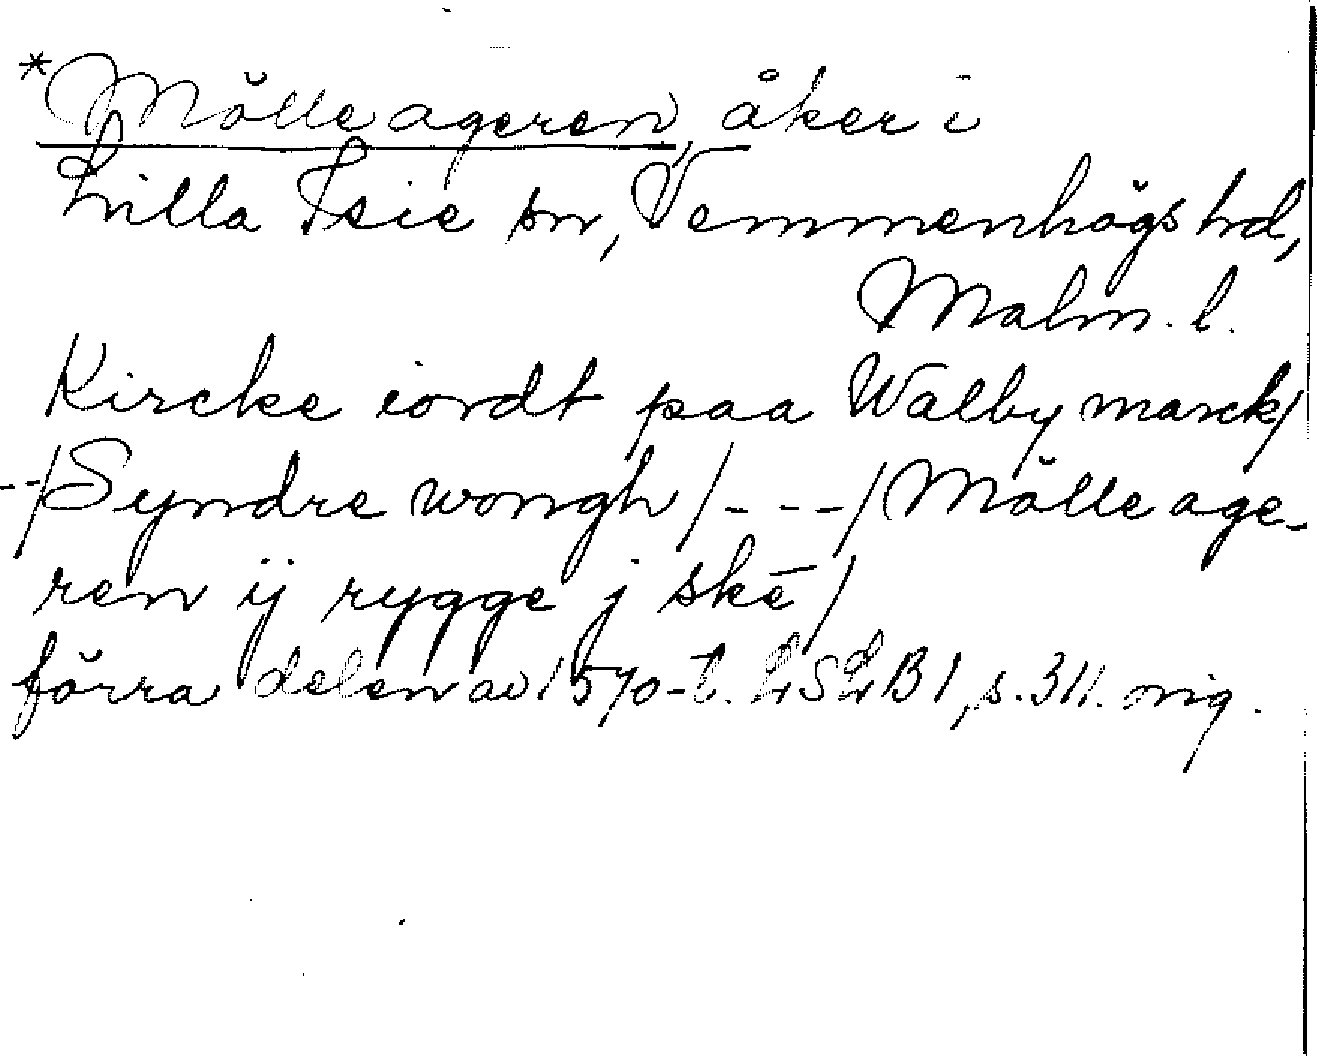 *Mölleageren, åker i
Lilla Isie sn, Vemmenhögs hd,
Malm. l.
Kircke iordt paa Walby marck/
--/Syndre wongh/---/Mölleage-
ren ij rygge j skē/
förra delen av 1570-t. LSLB1, s. 311. orig.